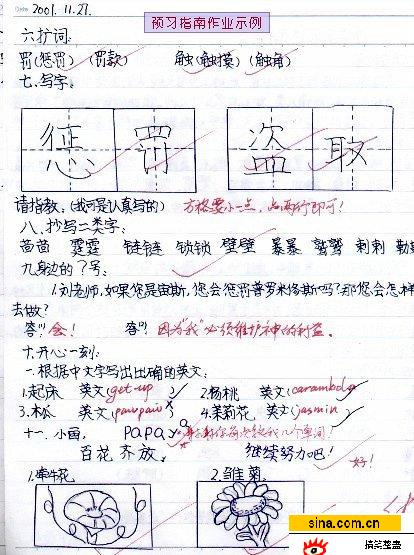 Date 2001.11.27.
预习指南作业示例
六.扩词:
罚(惩罚)(罚款) 触(触摸)(触角)
七.写字:
惩 罚 盗 取
请指教:(我可是认真写的) 方格要小一点,占两行即可!
八.抄写二类字:
苗苗 霆霆 链链 锁锁 壁壁 暴暴 鹫鹫 刺刺
九.身边的?号:
1.刘老师,如果您是宙斯,您会惩罚普罗米修斯吗?那您会怎样
去做?
答:会! 答:因为“我”必须维护神的利益.
十.开心一刻:
一.根据中文字写出正确的英文:
1.起床 英文(get up) 2.杨桃 英文(carambola)
3.木瓜 英文(pawpaw) 4.茉莉花 英文(jasmin)
十一.小画, papaya
百花齐放. 继续努力吧!
好!
1.牵牛花 2.雏菊
sina.com.cn
搞笑整蛊